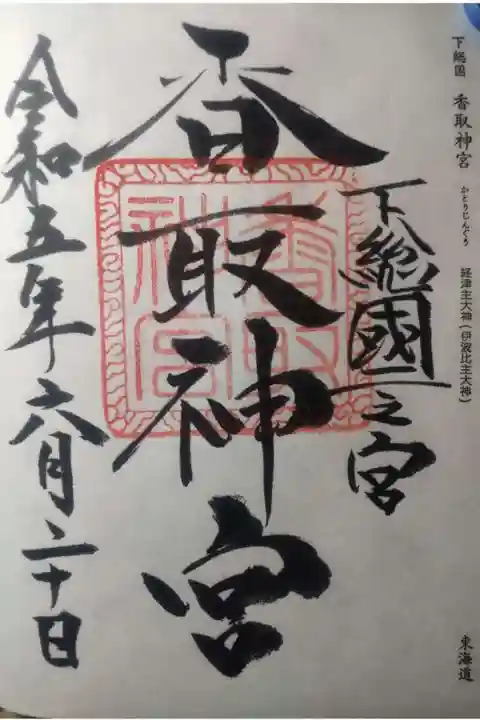 下総国 香取神宮 かとりじんぐう 経津主大神(伊波比主大神)
東海道
下総國一之宮
香取神宮
香取神宮
令和五年六月二十日